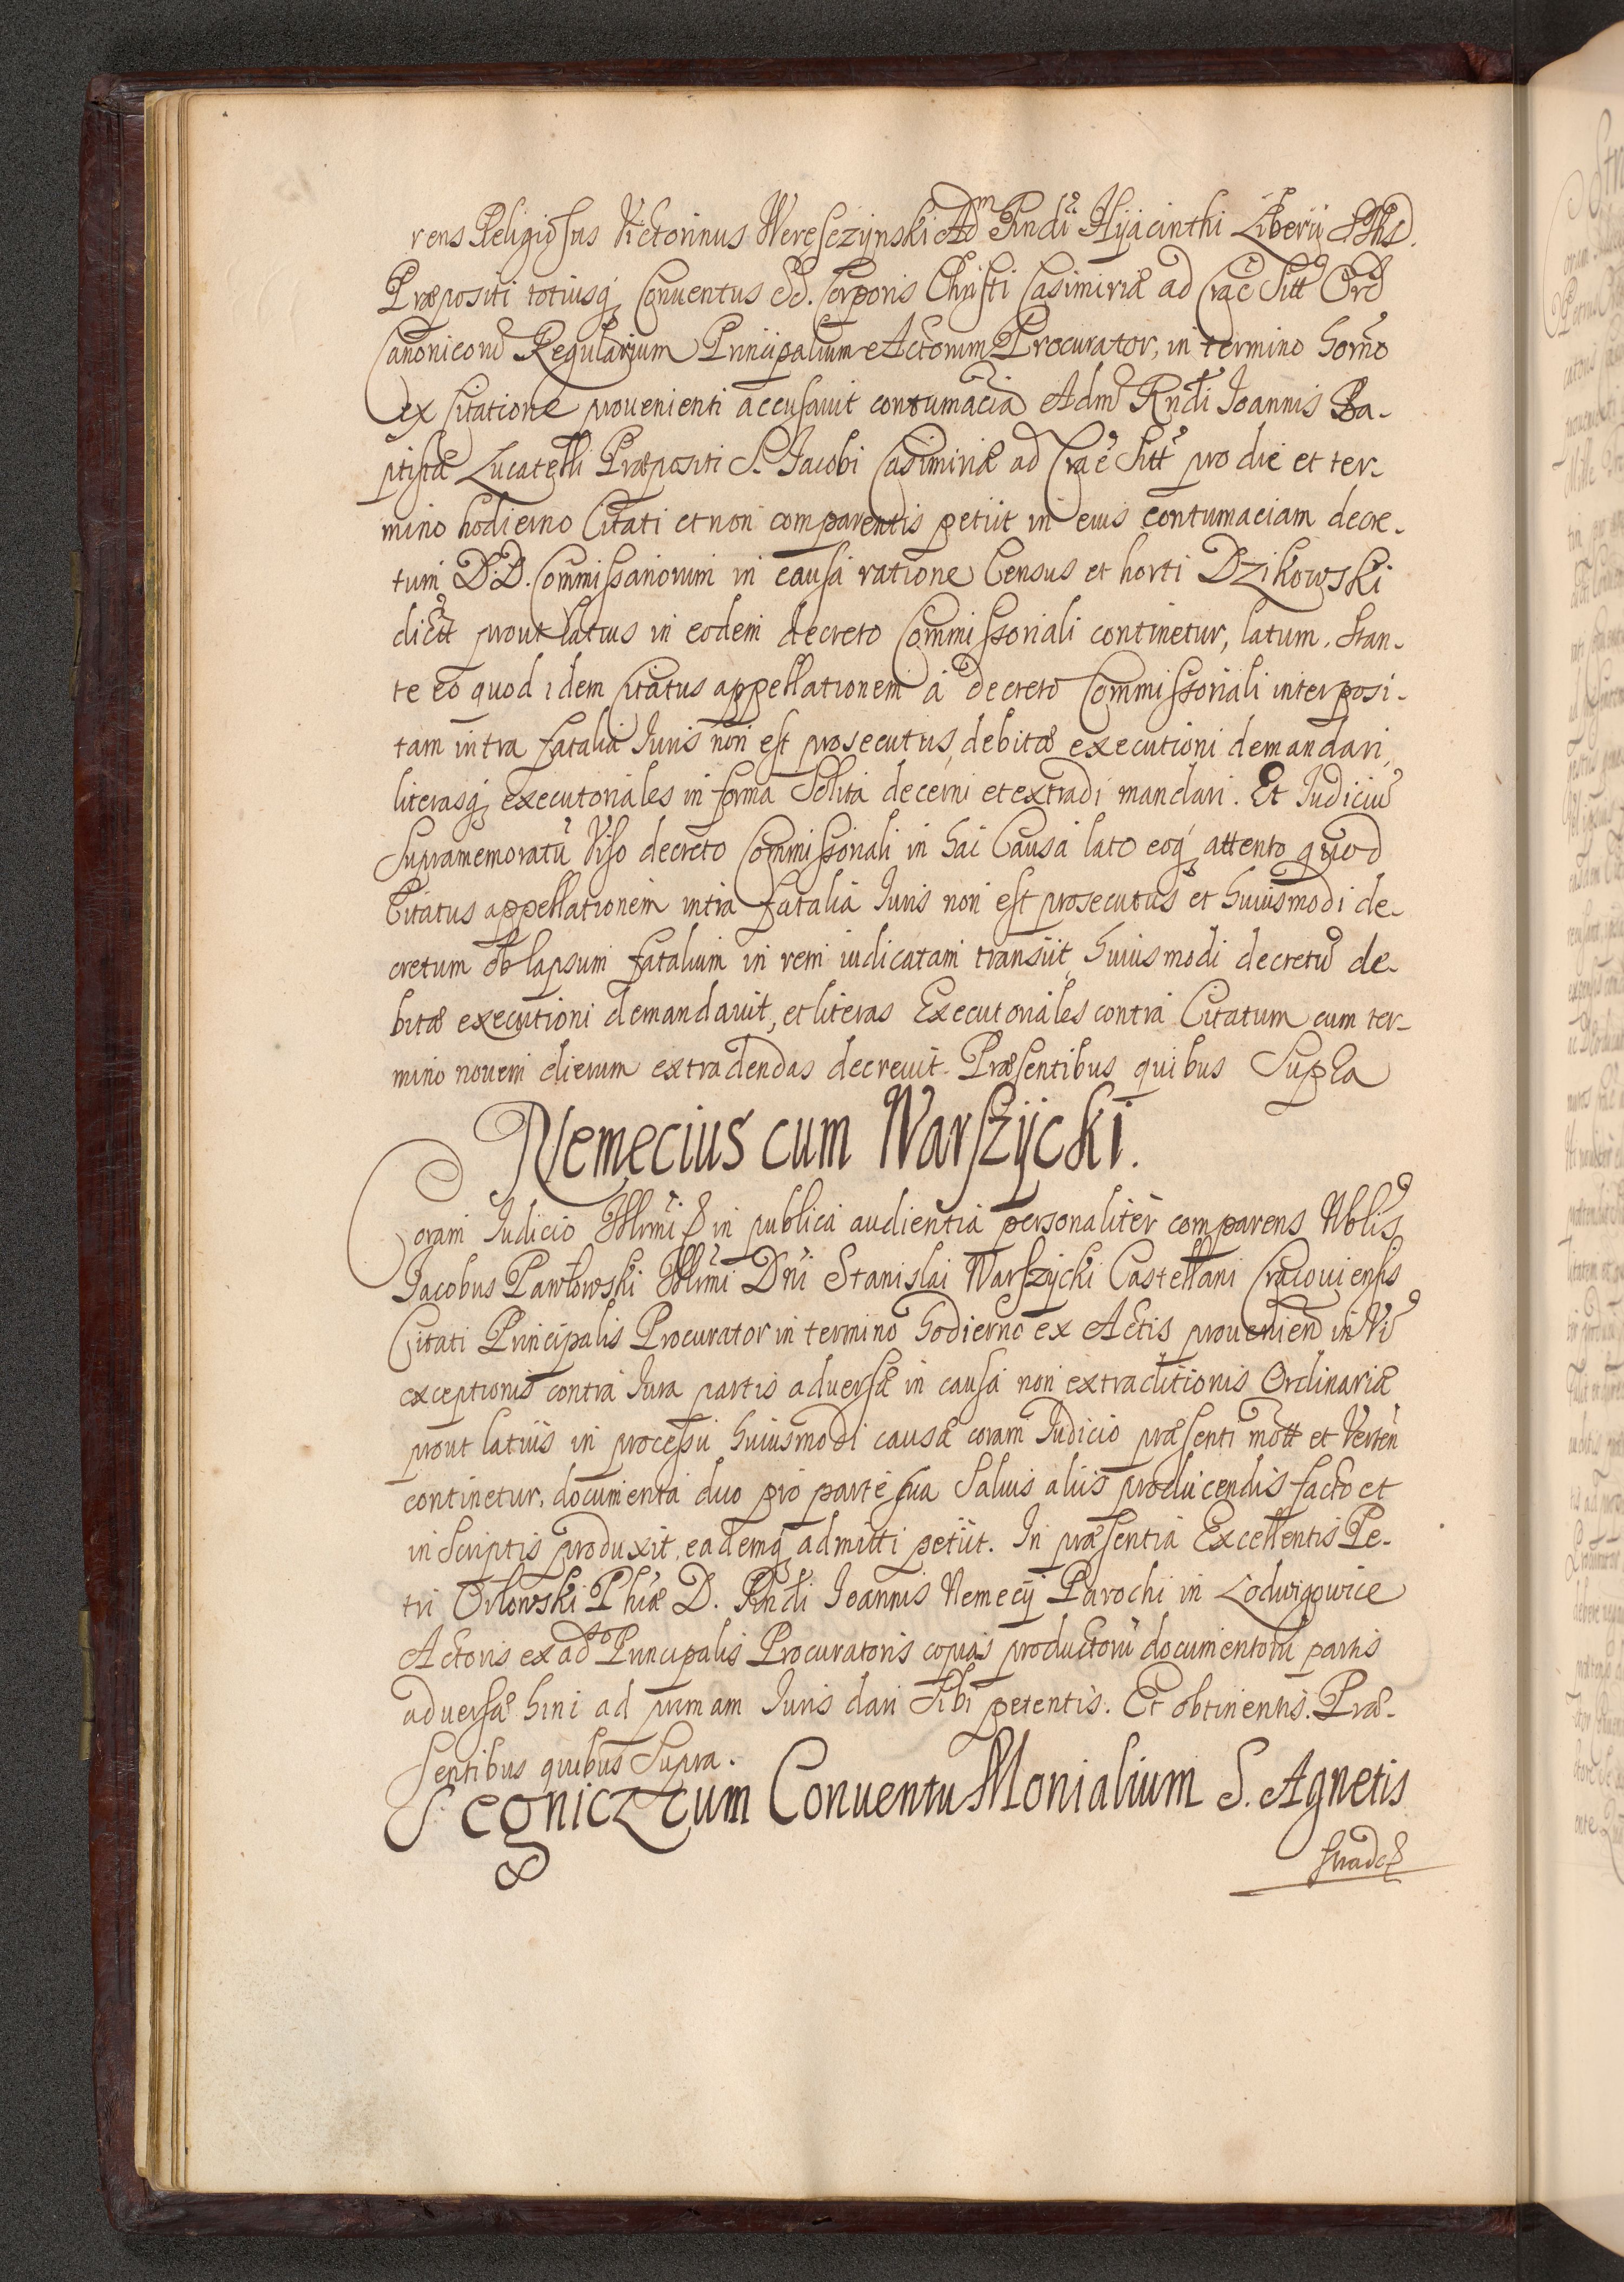 rens Religiosus Victorinus Weresczynski Adm Rndi Hyacinthi Liberii
Præpositi totiusq Conuentus Ssi. Corporis Christi Casimiriæ ad Crac Sitt Ord
Canonicorũ Regularium Principalium Actorum Procurator, in termino horno
ex citatione prouenienti accusauit contumaciã Admũ Rndi Joannis Ba-
ptistæ Lucatelli Præpositi S. Jacobi Casimiriæ ad Crac Sitt pro die et ter-
mino hodierno Citati et non comparentis petiit in eius contumaciam decre-
tum D.D. Commissariorum in causa ratione Census et horti Dzikowski
dictt prout latius in eodem decreto Commissoriali continetur, latum. Stan-
te eo quod idem Citatus appellationem à decreto Commissoriali interposi-
tam intra fatalia Iuris non est prosecutus, debitæ executioni demandari,
literasq executoriales in forma Solita decerni et extradi mandari. Et Judiciũ
Supramemoratũ Viso decreto Commissoriali in hac Causa lato eoq attento quod
Citatus appellationem intra fatalia Iuris non est prosecutus et huiusmodi de-
cretum ob lapsum fatalium in rem iudicatam transiit, huiusmodi decretũ de-
bitæ executioni demandauit, et literas Executoriales contra Citatum cum ter-
mino nouem dierum extradendas decreuit. Præsentibus quibus Supra
Nemecius cum Warszycki.
Coram Iudicio Illrmi & in publica audientia personaliter comparens Nblis
Jacobus Pawłowski Illrmi Dni Stanislai Warszycki Castellani Cracouiensis
Citati Principalis Procurator in termino hodierno ex Actis prouenien in Vi
exceptionis contra Iura partis aduersæ in causa non extraditionis Ordinariæ
prout latius in processu huiusmodi causæ coram Iudicio præsenti mott et Verten
continetur, documenta duo pro parte sua Saluis aliis producendis facto et
in Scriptis produxit, eademq admitti petiit. In præsentia Excellentis Pe-
tri Orlowski Phiæ D. Rndi Joannis Nemecy Parochi in Lodwigowice
Actoris ex adũ Principalis Procuratoris copias productorũ documentorũ partis
aduersæ hinc ad primam Iuris dari Sibi petentis. Et obtinentis. Præ-
sentibus quibus Supra.
Segnicz cum Conuentu Monialium S. Agnetis